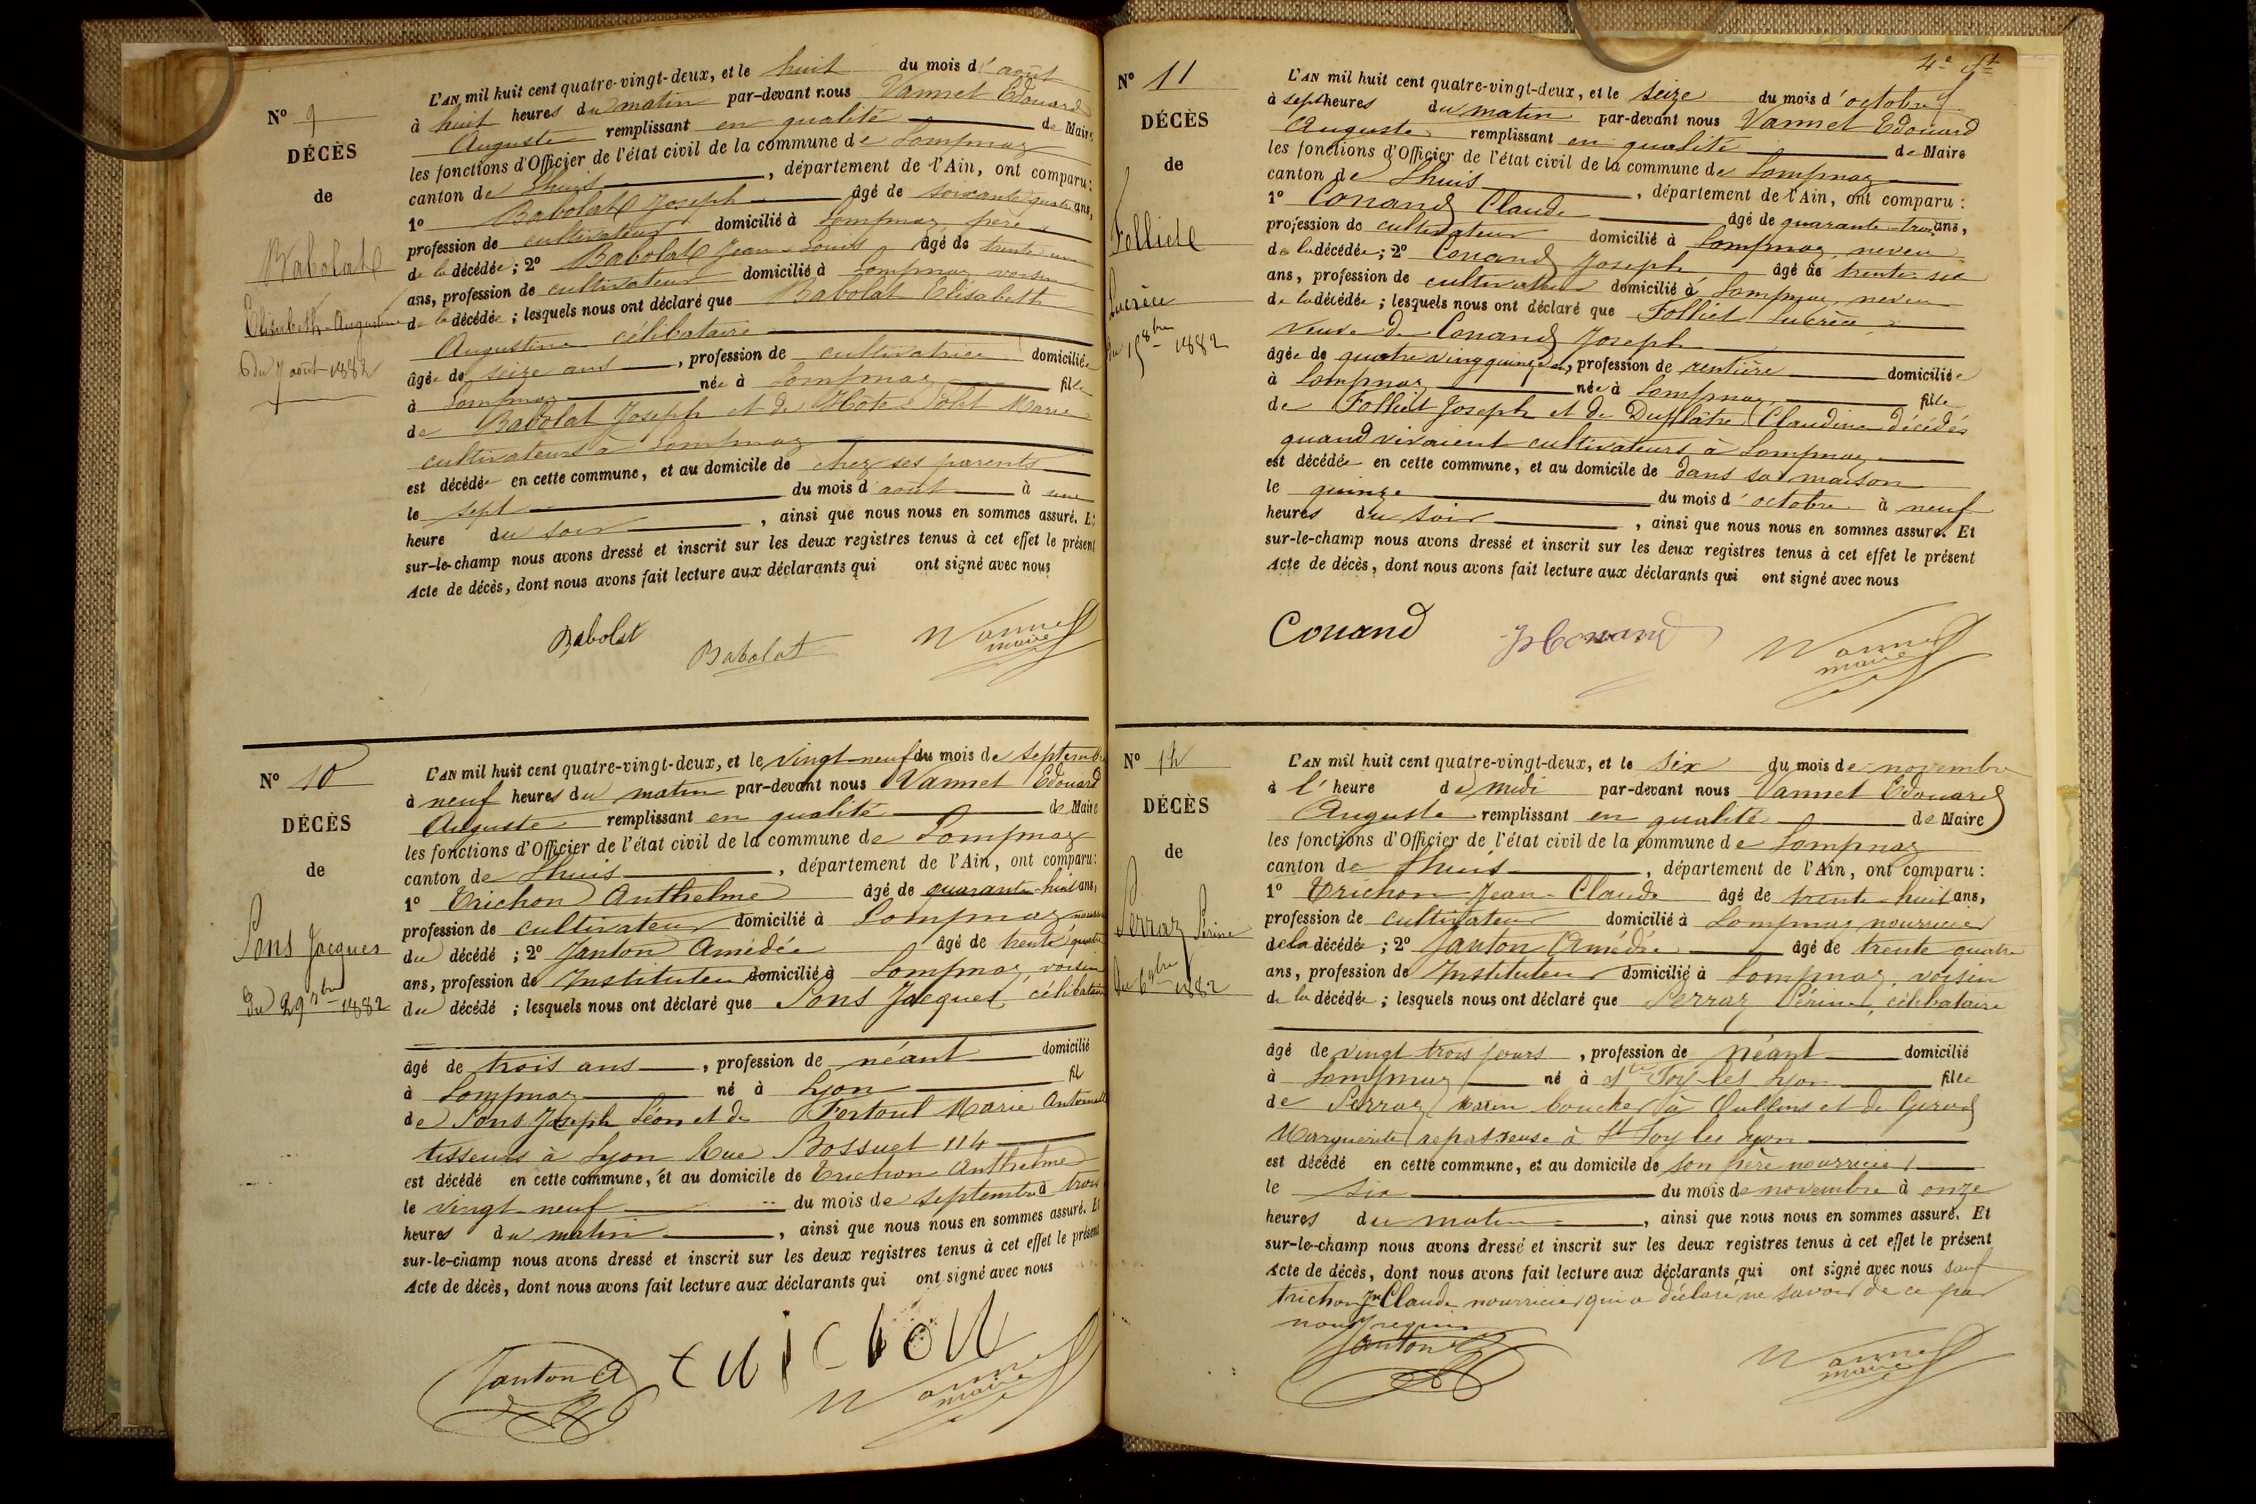 N° 9
DÉCÈS
de
Babolat
Elisabeth-Augustine
du 7 août 1882
L'AN mil huit cent quatre-vingt-deux, et le huit du mois d'août
à huit heures du matin par-devant nous Vannet Edouard
Auguste remplissant en qualité de Maire
les fonctions d'Officier de l'état civil de la commune de Lompnaz
canton de Lhuis, département de l'Ain, ont comparu:
1° Babolat Joseph âgé de soixante quatre ans,
profession de cultivateur domicilié à Lompnaz père
de la décédée; 2° Babolat Jean-Louis âgé de trente un
ans, profession de cultivateur domicilié à Lompnaz voisin
de la décédée; lesquels nous ont déclaré que Babolat Elisabeth
Augustine célibataire
âgée de seize ans, profession de cultivatrice domiciliée
à Lompnaz née à Lompnaz fille
de Babolat Joseph et de Marie
cultivateurs à Lompnaz
est décédée en cette commune, et au domicile de chez ses parents
le sept du mois d'août à une
heure du soir, ainsi que nous nous en sommes assuré. Et
sur-le-champ nous avons dressé et inscrit sur les deux registres tenus à cet effet le présent
Acte de décès, dont nous avons fait lecture aux déclarants qui ont signé avec nous
Babolat Babolat Vannet
maire
N° 10
DÉCÈS
de
Pons Jacques
du 29 7bre 1882
L'AN mil huit cent quatre-vingt-deux, et le vingt-neuf du mois de septembre
à neuf heures du matin par-devant nous Vannet Edouard
Auguste remplissant en qualité de Maire
les fonctions d'Officier de l'état civil de la commune de Lompnaz
canton de Lhuis, département de l'Ain, ont comparu:
1° Trichon Anthelme âgé de quarante-huit ans,
profession de cultivateur domicilié à Lompnaz
du décédé; 2° Janton Amédée âgé de trente quatre
ans, profession de Instituteur domicilié à Lompnaz, voisin
du décédé; lesquels nous ont déclaré que Pons Jacques, célibataire
âgé de trois ans, profession de néant domicilié
à Lompnaz né à Lyon fils
de Pons Joseph Léon et de Fertoul Marie Antoinette
tisseurs à Lyon Rue Bossuet 114
est décédé en cette commune, et au domicile de Trichon Anthelme
le vingt neuf du mois de septembre à trois
heures du matin, ainsi que nous nous en sommes assuré. Et
sur-le-champ nous avons dressé et inscrit sur les deux registres tenus à cet effet le présent
Acte de décès, dont nous avons fait lecture aux déclarants qui ont signé avec nous
Janton A trichon Vannet
maire
4e ft
N° 11
DÉCÈS
de
Folliet
Lucrèce
du 15 8bre 1882
L'AN mil huit cent quatre-vingt-deux, et le seize du mois d'octobre
à sept heures du matin par-devant nous Vannet Edouard
Auguste remplissant en qualité de Maire
les fonctions d'Officier de l'état civil de la commune de Lompnaz
canton de Lhuis, département de l'Ain, ont comparu:
1° Conand Claude âgé de quarante-trois ans,
profession de cultivateur domicilié à Lompnaz, neveu
de la décédée; 2° Conand Joseph âgé de trente-six
ans, profession de cultivateur domicilié à Lompnaz, neveu
de la décédée; lesquels nous ont déclaré que Folliet Lucrèce,
veuve de Conand Joseph
âgée de quatre vingt quinze ans, profession de rentière domiciliée
à Lompnaz née à Lompnaz fille
de Folliet Joseph et de Duplâtre Claudine décédés
quand vivaient cultivateurs à Lompnaz
est décédée en cette commune, et au domicile de dans sa maison
le quinze du mois d'octobre à neuf
heures du soir, ainsi que nous nous en sommes assuré. Et
sur-le-champ nous avons dressé et inscrit sur les deux registres tenus à cet effet le présent
Acte de décès, dont nous avons fait lecture aux déclarants qui ont signé avec nous
Conand Jh Conand Vannet
maire
N° 12
DÉCÈS
de
Perraz Périne
du 6 9bre 1882
L'AN mil huit cent quatre-vingt-deux, et le six du mois de novembre
à l'heure de midi par-devant nous Vannet Edouard
Auguste remplissant en qualité de Maire
les fonctions d'Officier de l'état civil de la commune de Lompnaz
canton de Lhuis, département de l'Ain, ont comparu:
1° Trichon Jean-Claude âgé de trente-huit ans,
profession de cultivateur domicilié à Lompnaz nourricier
de la décédée; 2° Janton Amédée âgé de trente quatre
ans, profession de Instituteur domicilié à Lompnaz, voisin
de la décédée; lesquels nous ont déclaré que Perraz Périne, célibataire
âgé de vingt trois jours, profession de Néant domicilié
à Lompnaz né à Ste Foy-les Lyon fille
de Perraz boucher à Oullins et de Girod
Marguerite repasseuse à St Foy les Lyon
est décédé en cette commune, et au domicile de son père nourricier
le six du mois de novembre à onze
heures du matin, ainsi que nous nous en sommes assuré. Et
sur-le-champ nous avons dressé et inscrit sur les deux registres tenus à cet effet le présent
Acte de décès, dont nous avons fait lecture aux déclarants qui ont signé avec nous sauf
trichon Jn Claude nourricier qui a déclaré ne savoir de ce par
nous requis
Janton A Vannet
maire